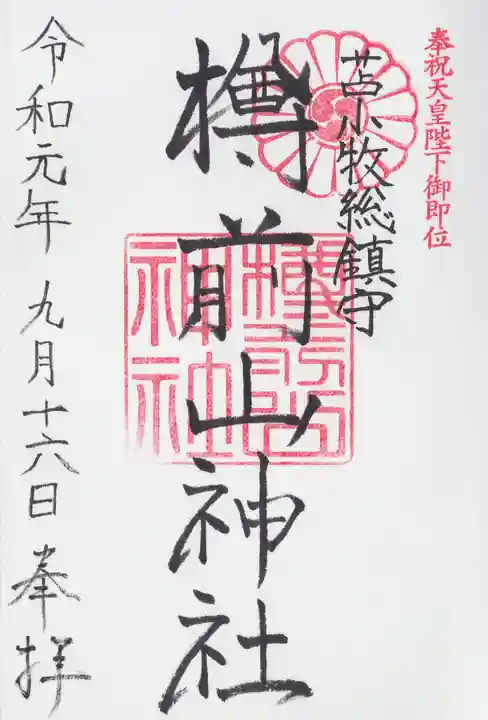 奉祝天皇陛下御即位
苫小牧総鎮守
樽前山神社
樽前山神社
令和元年九月十六日奉拝